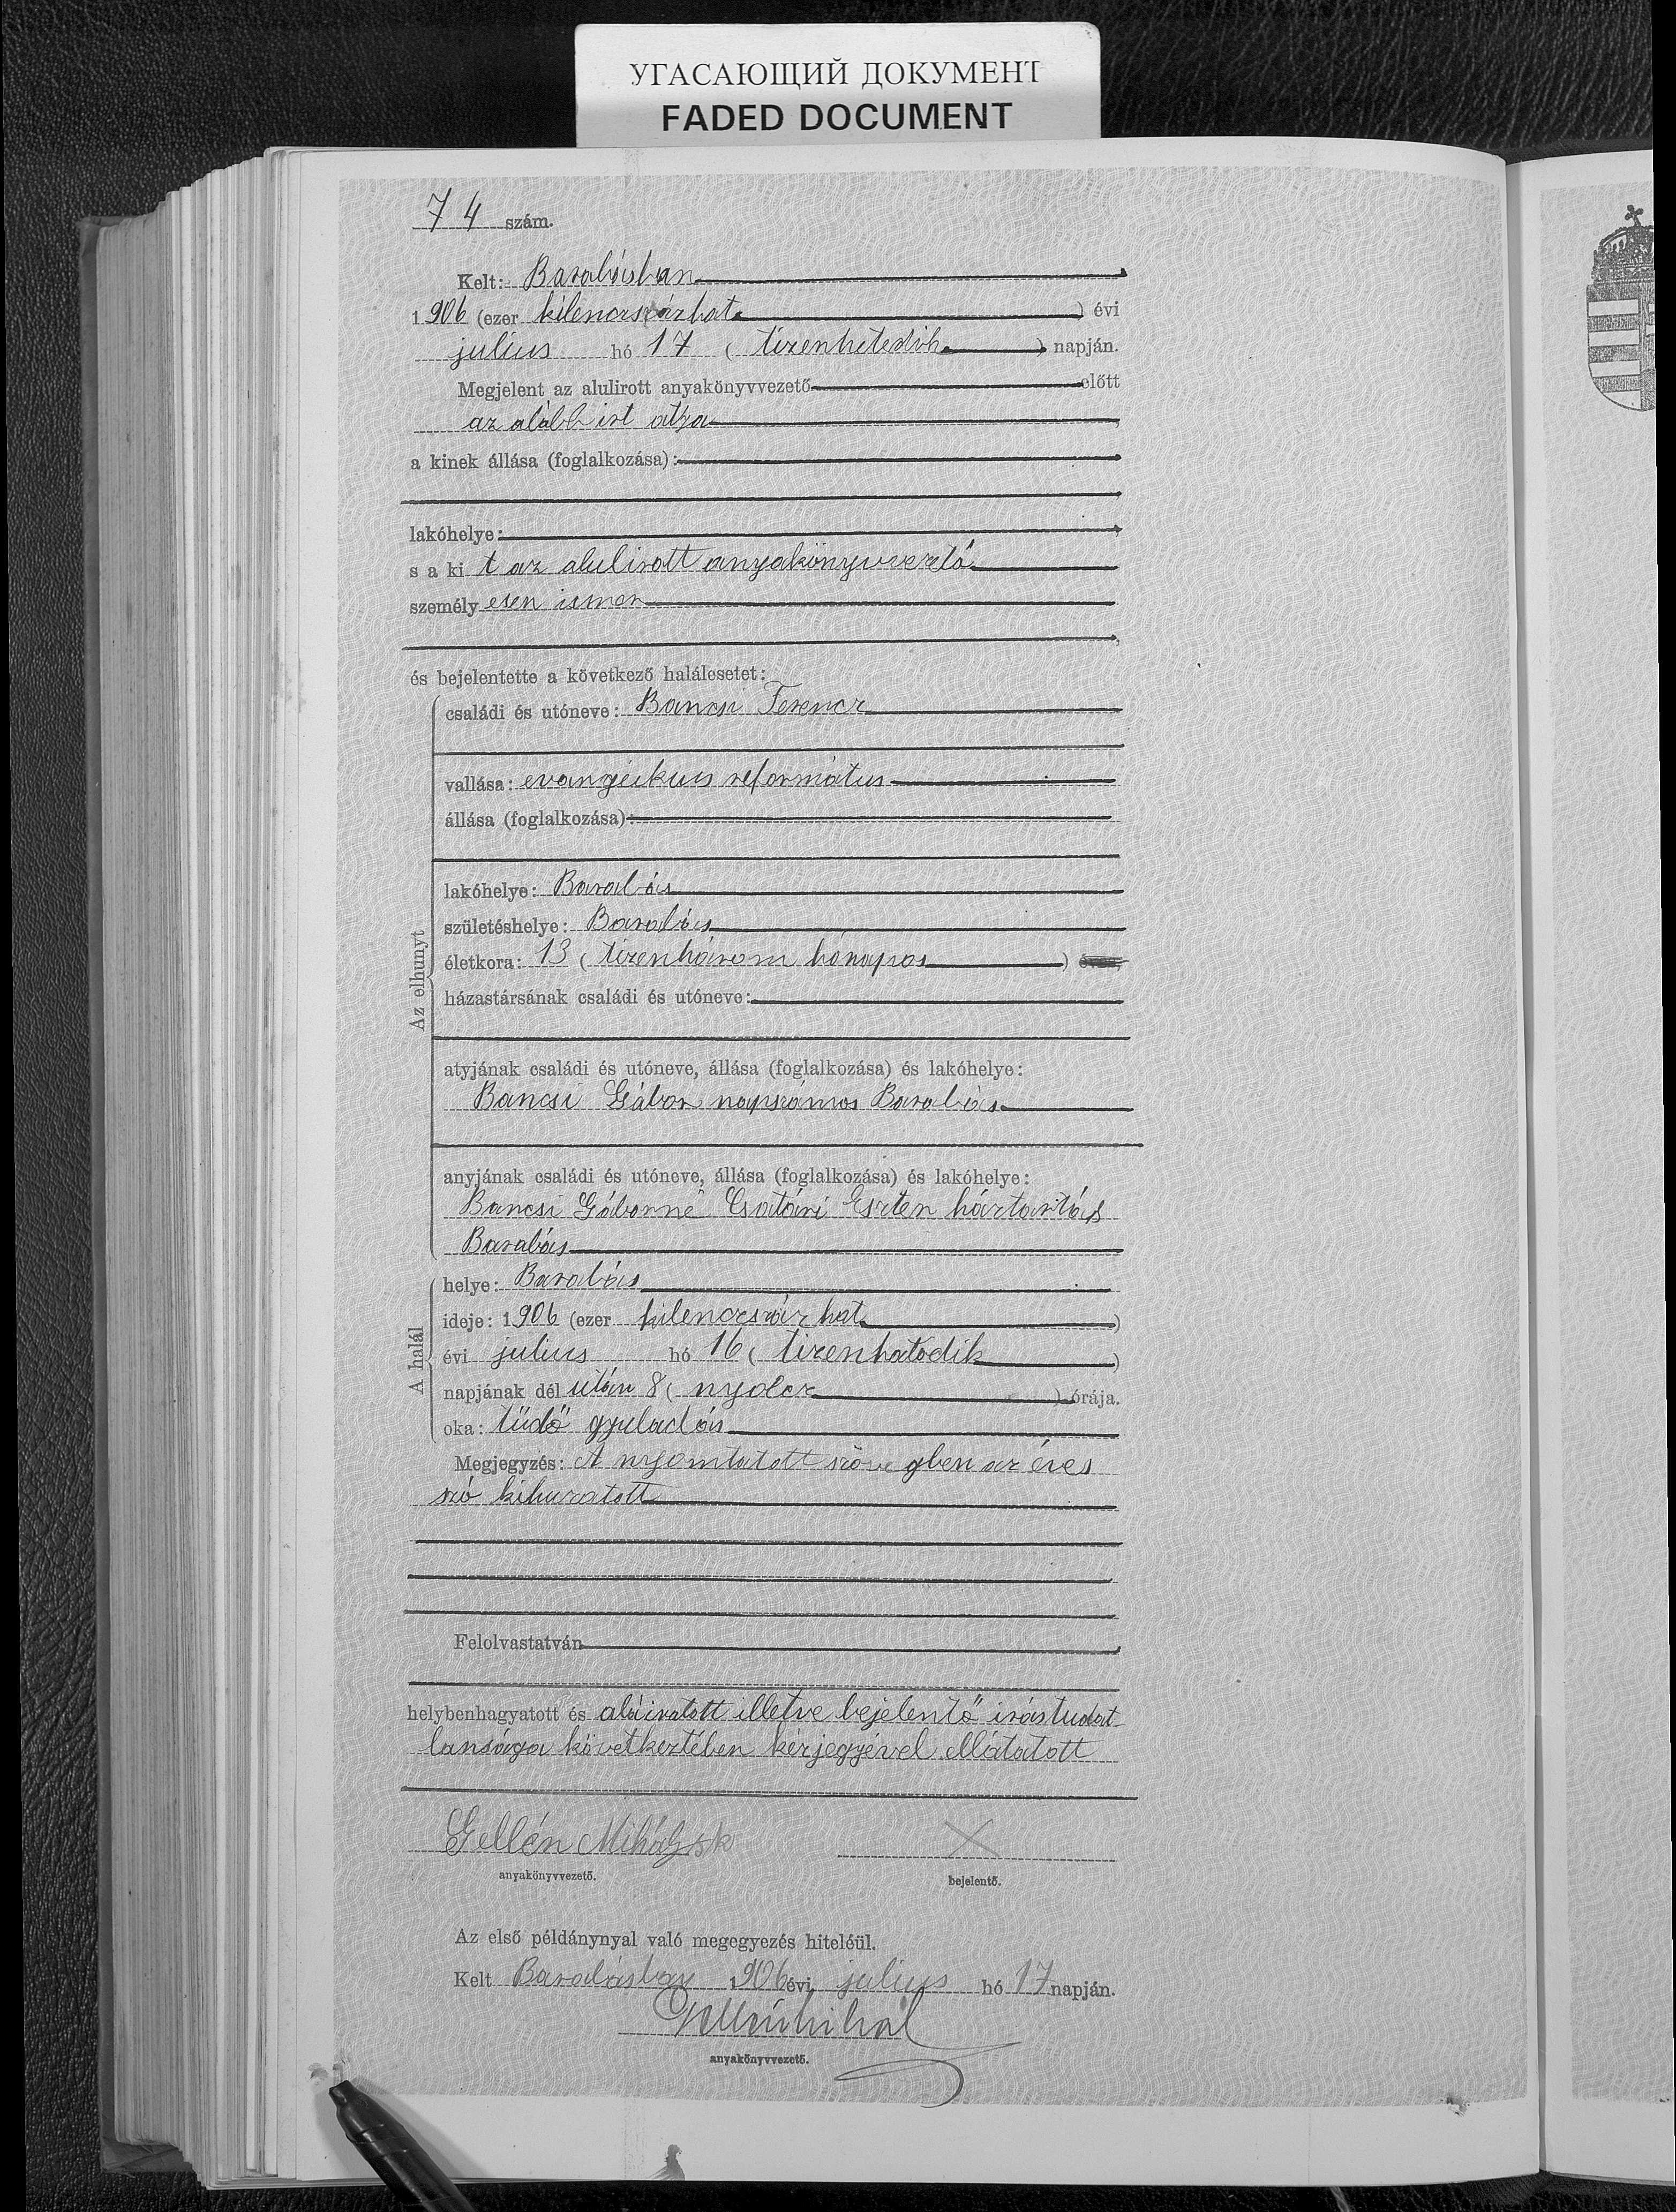 УГАСАЮЩИЙ ДОКУМЕНТ
FADED DOCUMENT
74 szám.
Kelt: Barabásban
1906 (ezer kilenczszázhat ) évi
julius hó 17 ( tizenhetedik ) napján.
Megjelent az alulirott anyakönyvvezető előtt
az alább irt atyja
a kinek állása (foglalkozása):
lakóhelye:
s a ki t az alulirott anyakönyvvezető
személy esen ismer
és bejelentette a következő halálesetet:
Az elhunyt
családi és utóneve: Bancsi Ferencz
vallása: evangélikus református
állása (foglalkozása):
lakóhelye: Barabás
születéshelye: Barabás
életkora: 13 ( tizenhárom hónapos ) éves,
házastársának családi és utóneve:
atyjának családi és utóneve, állása (foglalkozása) és lakóhelye:
Bancsi Gábor napszámos Barabás
anyjának családi és utóneve, állása (foglalkozása) és lakóhelye:
Bancsi Gáborné Csatári Eszter háztartás
Barabás
A halál
helye: Barabás
ideje: 1906 (ezer kilenczszáz hat )
évi julius hó 16 ( tizenhatodik )
napjának dél után 8 ( nyolcz ) órája.
oka: tüdő gyuladás
Megjegyzés: A nyomtatott szövegben az éves
szó kihuzatott
Felolvastatván
helybenhagyatott és aláiratott illetve bejelentő irástudat
lansága következtében kézjegyével elláttatott
Gellén Mihály sk
anyakönyvvezető.
X
bejelentő.
Az első példánynyal való megegyezés hiteléül.
Kelt Barabásban 1906 évi julius hó 17 napján.
Gellén Mihál
anyakönyvvezető.